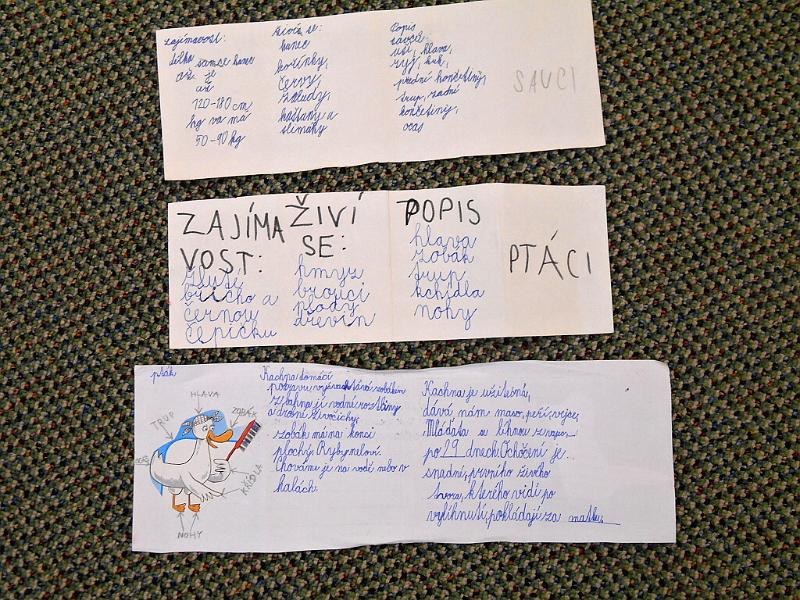 zajímavost:
délka samce kance
až je
až
120-180 cm
kg va má
50-90 kg
živí se:
kanec
kořínky,
červy,
žaludy,
kaštany a
slimáky
Popis
savců:
uši, hlava,
ryj, krk,
přední končetiny,
trup, zadní
končetiny,
ocas
SAVCI
ZAJÍMA
VOST:
žluté
břicho a
černou
čepičku
ŽIVÍ
SE:
hmyz
brouci
plody
dřevin
POPIS
hlava
zobák
trup
kchjdla
nohy
PTÁCI
pták
HLAVA
TRUP
ZOBÁK
KŘÍDLA
NOHY
Kachna domácí
potravu vyzvachtává zobákem
z bahna jí vodné rostliny
a drobné živočichy.
zobák má na konci
plochý. Ryby neloví.
Chováme je na vodě nebo v
halách.
Kachna je užitečná,
dává nám maso, peří, vejce,
Mláďata se líhnou
po 29 dnech. Ochočení je
snadné, prvního živého
tvora, kterého vidí po
vylíhnutí, pokládají za matku